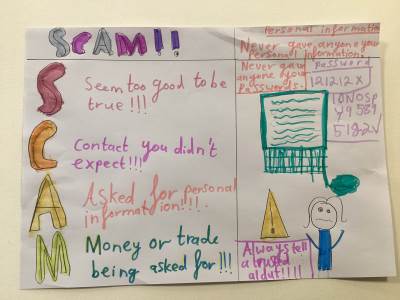 SCAM!!
S
Seem too good to be
true !!!
C
Contact you didn't
expect!!!
A
Asked for personal
information!!!.
M
Money or trade
being asked for!!!
Personal information
Never gave anyone your
Personal information.
Never gave
anyone your
passwords.
Password
121212X
Y9589
5182V
Always tell
a trusted
aldut!!!!